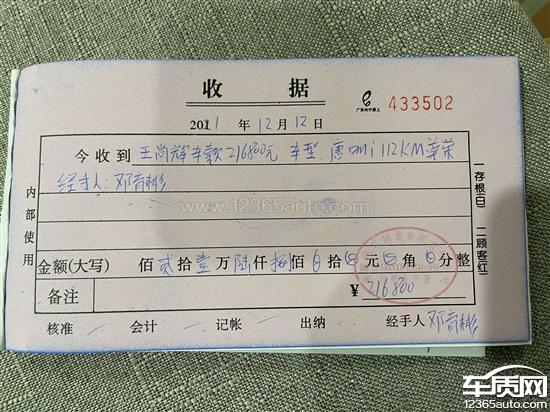 收据
433502
2021 年 12 月 12 日
今收到 王尚辉车款216800元 车型:唐dmi 112KM尊荣
经手人:邓育彬
www.12365auto.com
内部使用
一存根(白) 二顾客(红)
金额(大写) 佰贰拾壹万陆仟捌佰0拾0元0角0分整
备注 ¥216800
核准 会计 记帐 出纳 经手人 邓育彬
车质网
12365auto.com